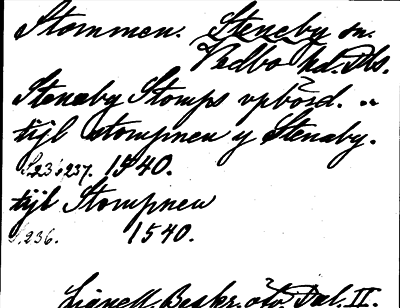 Stommen. Steneby sn.
Vedbo hd. Dls.
Stenæby Stomps vpbörd. ..
tijl stompnen y Stenæby.
S. 236 237. 1540.
tijl Stompnen
S. 236. 1540.
Lignell, Beskr. öfv. Dal. II.